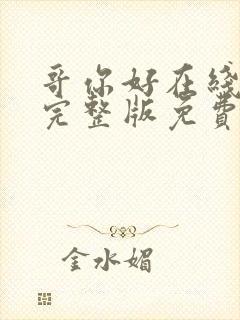 哥你好在线
完整版免费
金水媚